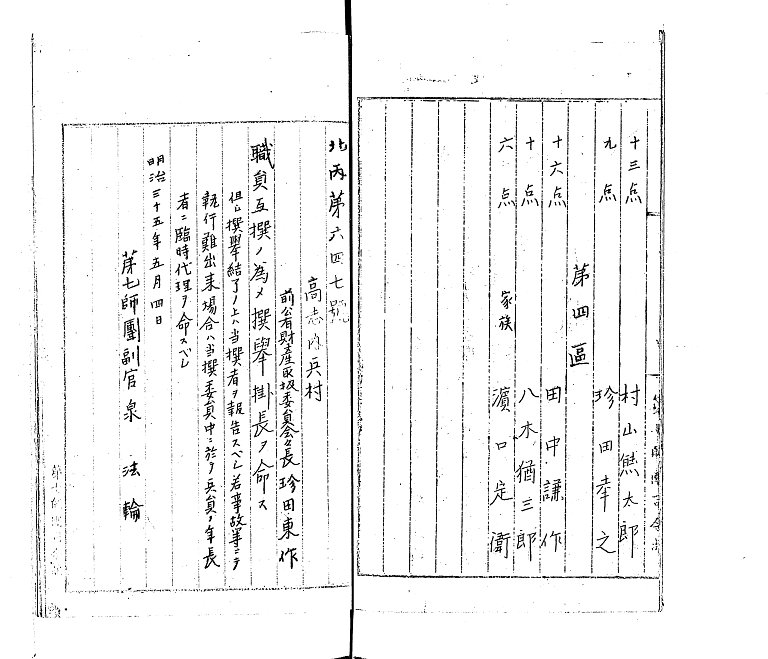 十三点 村山熊太郎
九点 珍田幸之
第四區
十六点 田中謙作
十点 八木猶三郎
六点 家族 濱口定衛
北丙第六四七號
高志内兵村
前公有財産取扱委員会々長 珍田東作
職員互撰ノ為メ撰舉掛長ヲ命ス
但シ撰舉結了ノ上ハ当撰者ヲ報告スベシ若事故等ニテ
執行難出来場合ハ当撰委員中ニ於テ兵員ノ年長
者ニ臨時代理ヲ命スベシ
明治三十五年五月四日
第七師團副官 泉 法輪